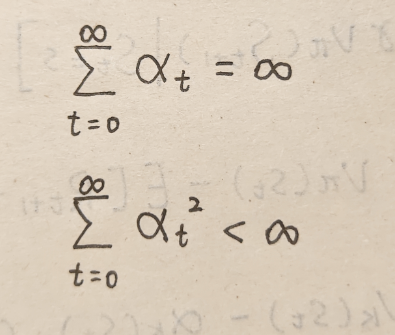 ∑_{t=0}^{∞} α_t = ∞
∑_{t=0}^{∞} α_t² < ∞